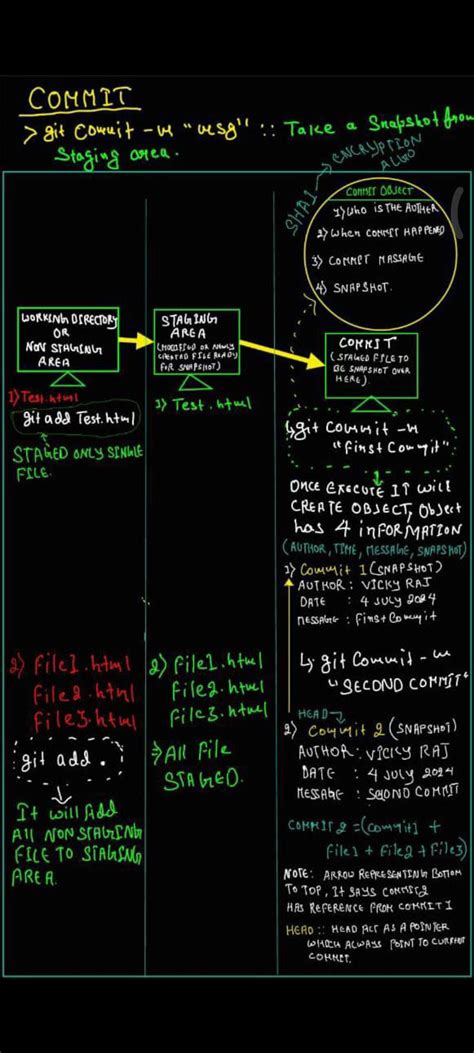 COMMIT
> git Commit -m "msg" :: Take a Snapshot from
Staging area.
SHA1 → ENCRYPTION
ALGO
COMMIT OBJECT
1) WHO IS THE AUTHER
2) WHEN COMMIT HAPPENED
3) COMMIT MASSAGE
4) SNAPSHOT.
WORKING DIRECTORY
OR
NON STAGING
AREA
1) Test.html
git add Test.html
STAGED ONLY SINGLE
FILE.
2) File1.html
File2.html
File3.html
git add .
It will Add
All NON STAGING
FILE TO STAGING
AREA.
STAGING
AREA
(MODIFIED OR NEWLY
CREATED FILE READY
FOR SNAPSHOT)
1) Test.html
2) File1.html
File2.html
File3.html
⇒ All File
STAGED.
COMMIT
(STAGED FILE TO
BE SNAPSHOT OVER
HERE).
↳ git Commit -m
"First Commit"
ONCE EXECUTE IT will
CREATE OBJECT, Object
has 4 INFORMATION
(AUTHOR, TIME, MESSAGE, SNAPSHOT)
1) Commit 1 (SNAPSHOT)
AUTHOR : VICKY RAJ
DATE : 4 JULY 2024
MESSAGE : First Commit
↳ git Commit -m
"SECOND COMMIT"
HEAD →
2) Commit 2 (SNAPSHOT)
AUTHOR : VICKY RAJ
DATE : 4 JULY 2024
MESSAGE : SECOND COMMIT
COMMIT 2 = (Commit 1 +
File1 + File2 + File3)
NOTE : ARROW REPRESENTING BOTTOM
TO TOP, IT SAYS COMMIT2
HAS REFERENCE FROM COMMIT 1
HEAD :: HEAD ACT AS A POINTER
WHICH ALWAYS POINT TO CURRENT
COMMIT.